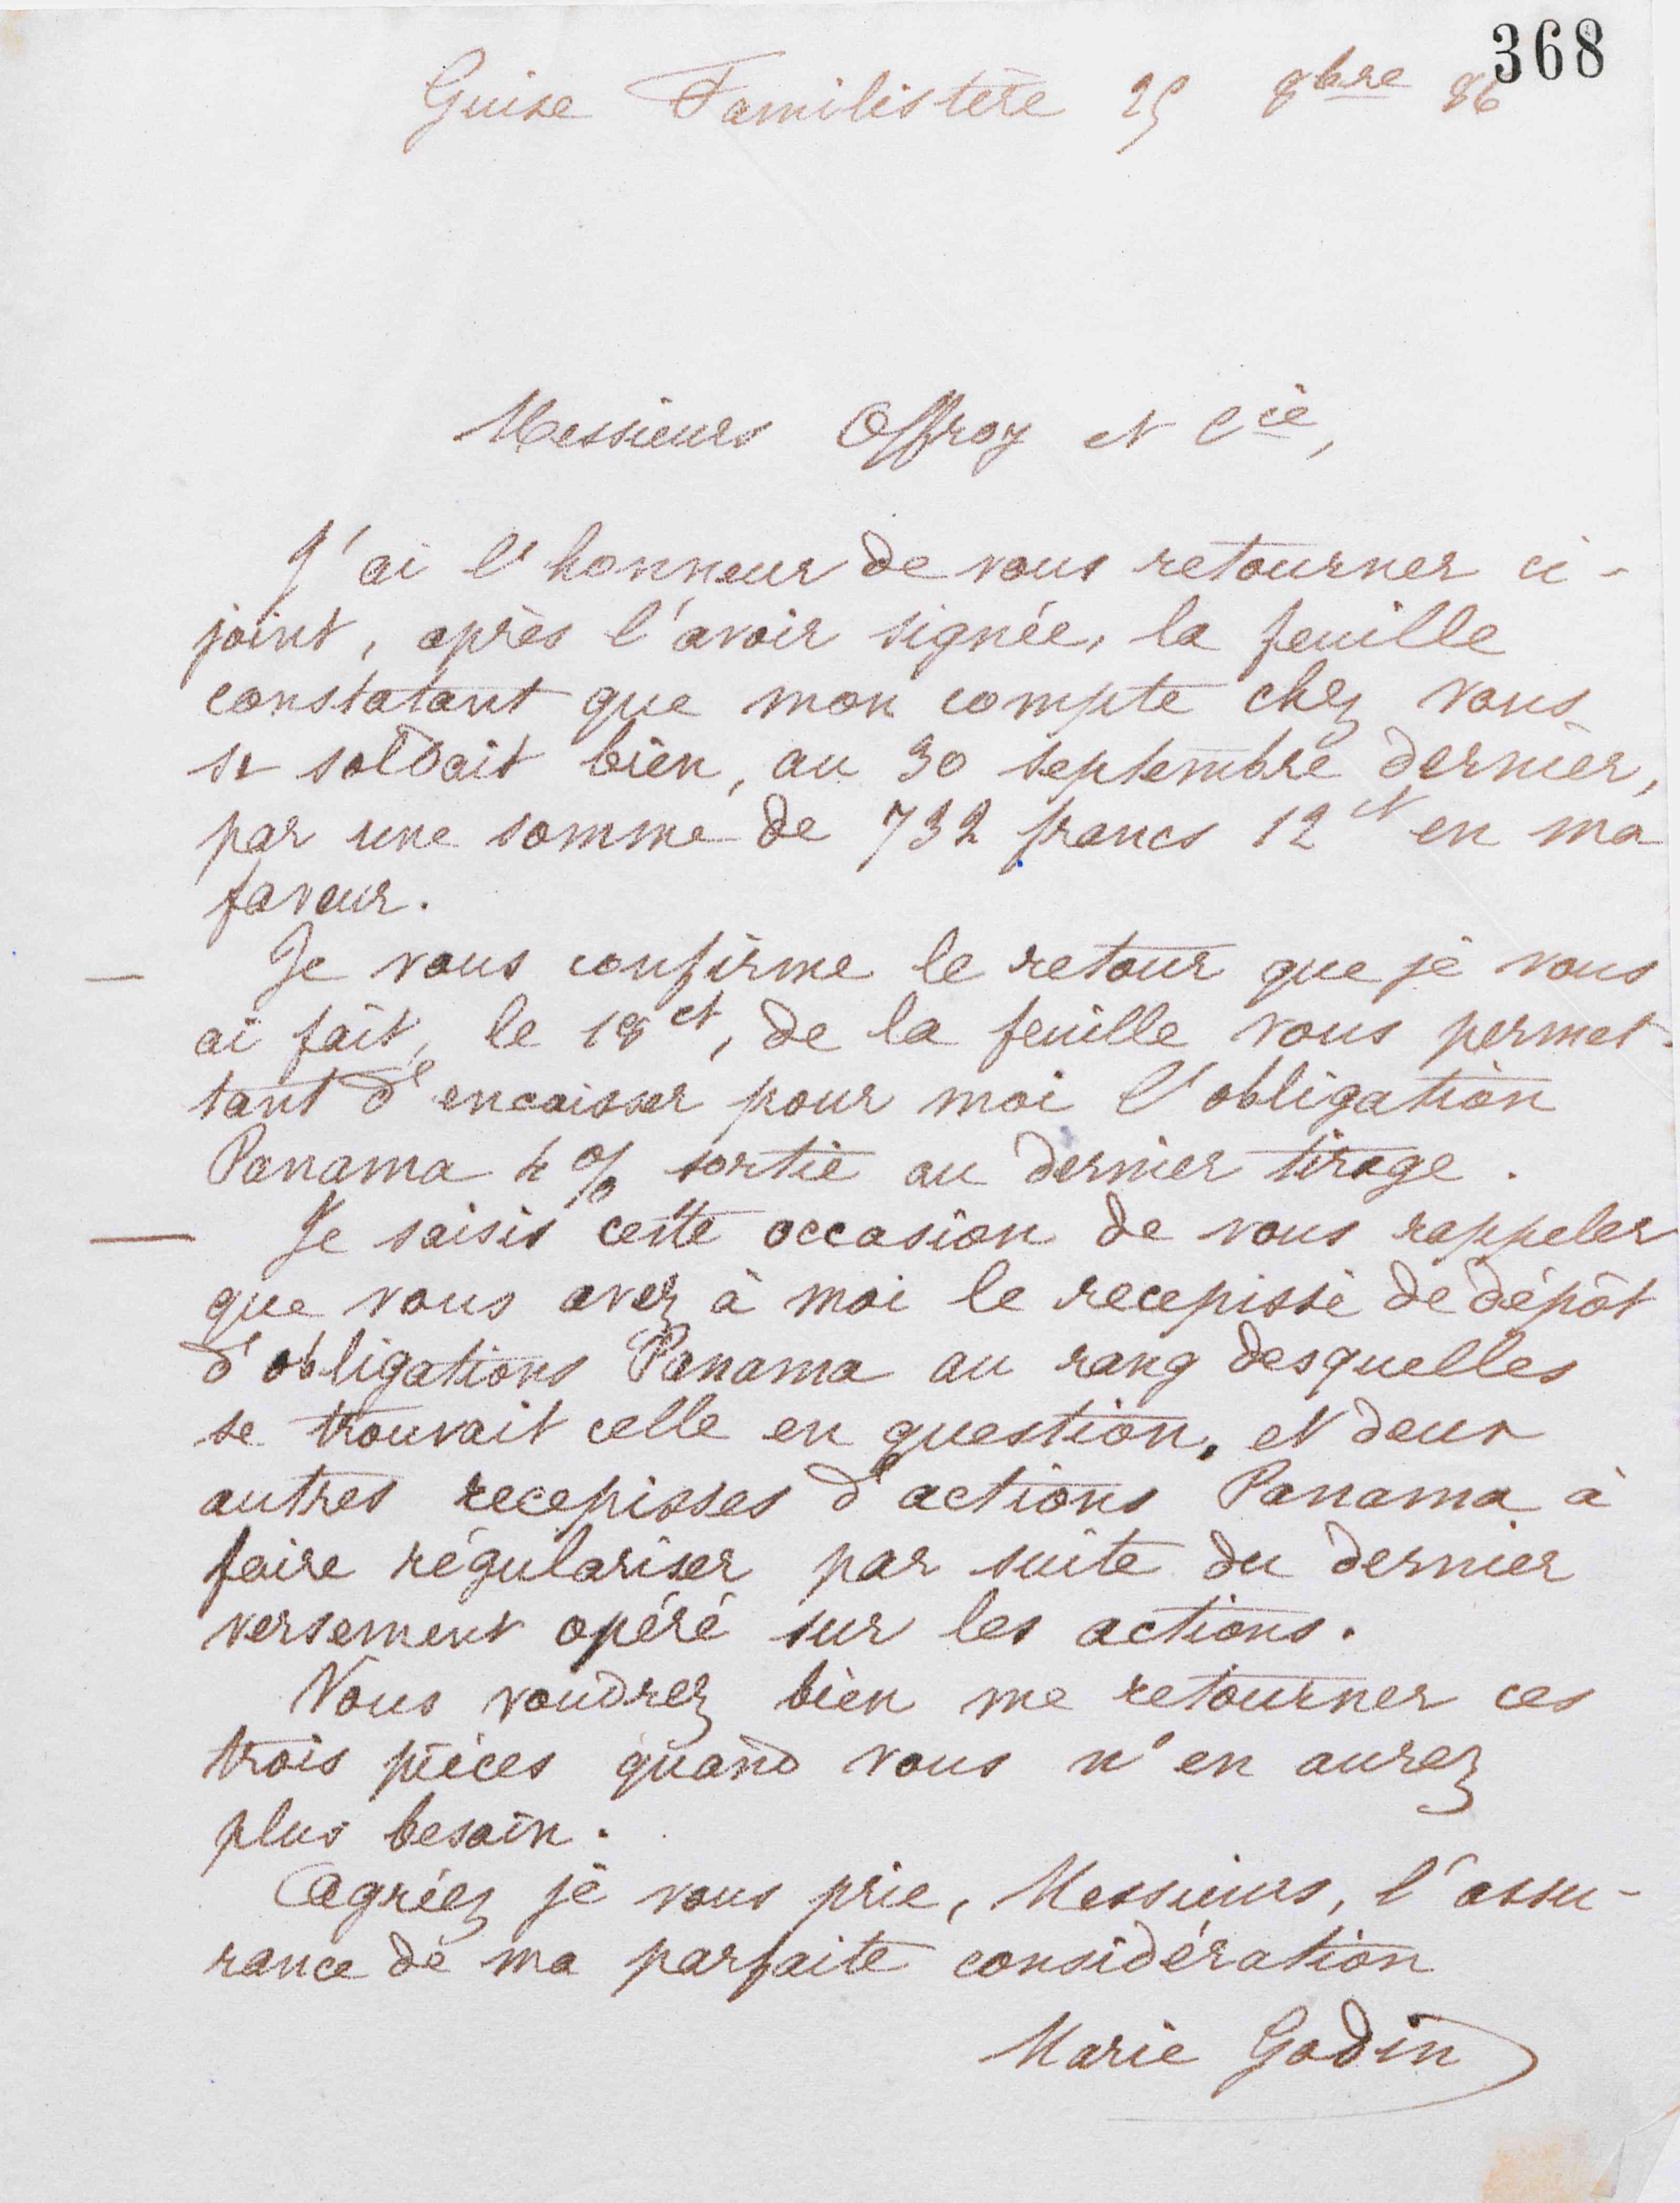 368
Guise Familistère 25 8bre 86
Messieurs Offroy et Cie,
J'ai l'honneur de vous retourner ci-
joint, après l'avoir signée, la feuille
constatant que mon compte chez vous
se soldait bien, au 30 septembre dernier,
par une somme de 732 francs 12 ct en ma
faveur.
— Je vous confirme le retour que je vous
ai fait, le 18 ct, de la feuille vous permet-
tant d'encaisser pour moi l'obligation
Panama 4 % sortie au dernier tirage.
— Je saisis cette occasion de vous rappeler
que vous avez à moi le recepissé de dépôt
d'obligations Panama au rang desquelles
se trouvait celle en question, et deux
autres recepisses d'actions Panama à
faire régulariser par suite du dernier
versement opéré sur les actions.
Vous voudrez bien me retourner ces
trois pièces quand vous n'en aurez
plus besoin.
Agréez je vous prie, Messieurs, l'assu-
rance de ma parfaite considération
Marie Godin